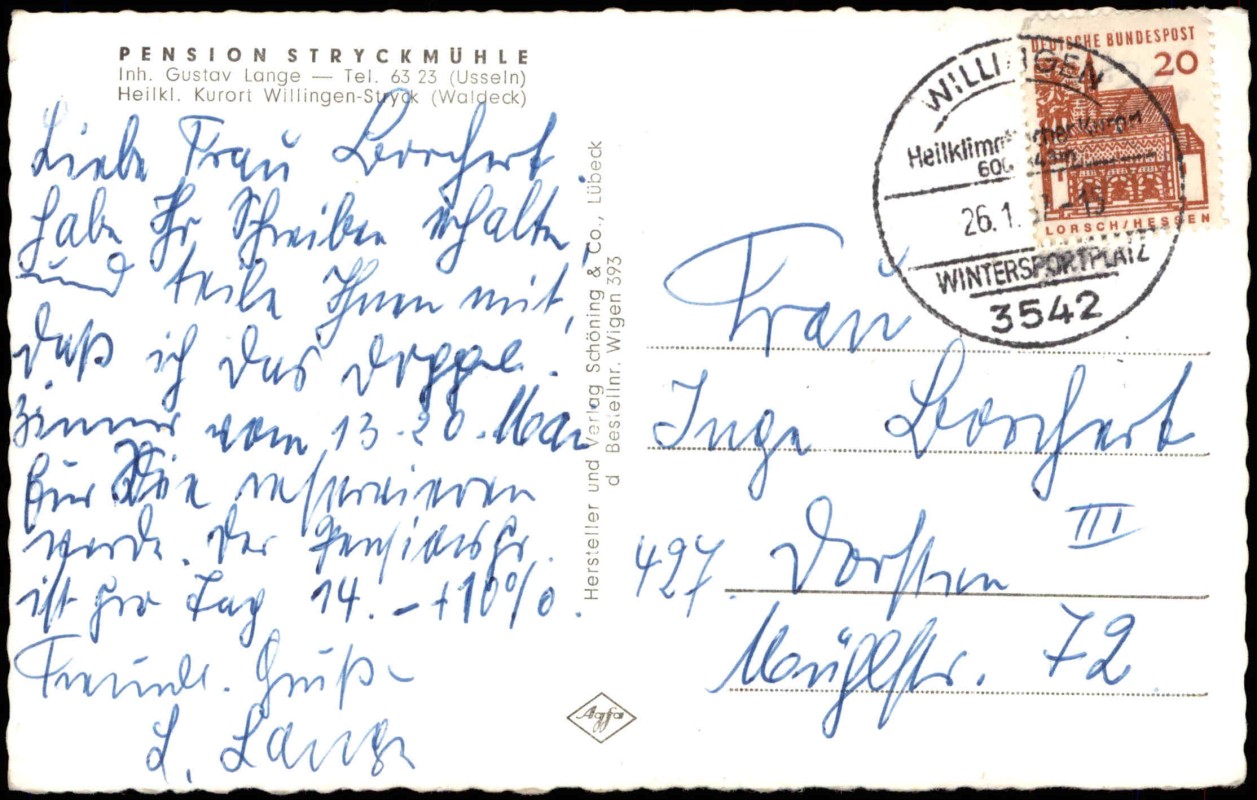 PENSION STRYCKMÜHLE
Inh. Gustav Lange — Tel. 63 23 (Usseln)
Heilkl. Kurort Willingen-Stryck (Waldeck)
Liebe Frau Borchert
habe Ihr Schreiben erhalten
und teile Ihnen mit,
daß ich das Doppel-
zimmer vom 13-20. Mai
für Sie reservieren
werde. Der Pensionspr.
ist pro Tag 14.- +10%.
Freundl. Grüße
L. Lange
Hersteller und Verlag Schöning & Co., Lübeck
d Bestellnr. Wigen 393
Agfa
DEUTSCHE BUNDESPOST
20
LORSCH/HESSEN
WILLINGEN
Heilklimatischer Kurort
26.1.
WINTERSPORTPLATZ
3542
Frau
Inge Borchert
III
427 Dorsten
Mühlstr. 72